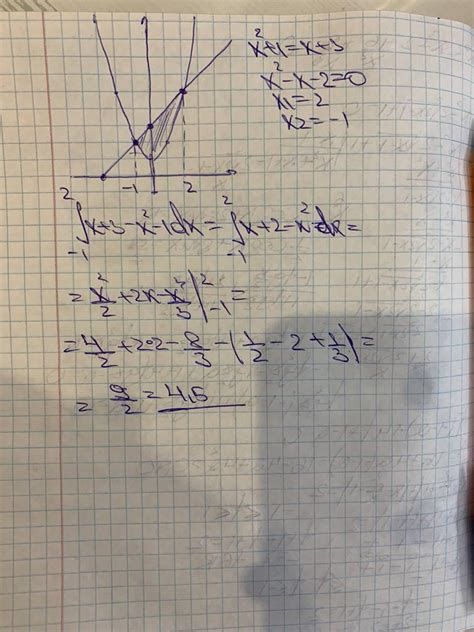 x²+1=x+3
x²-x-2=0
x1=2
x2=-1
-1 2
∫₋₁² x+3-x²-1dx = ∫₋₁² x+2-x² dx =
= x²/2 + 2x - x³/3 |₋₁² =
= 4/2 + 2·2 - 8/3 - (1/2 - 2 + 1/3) =
= 9/2 = 4,5